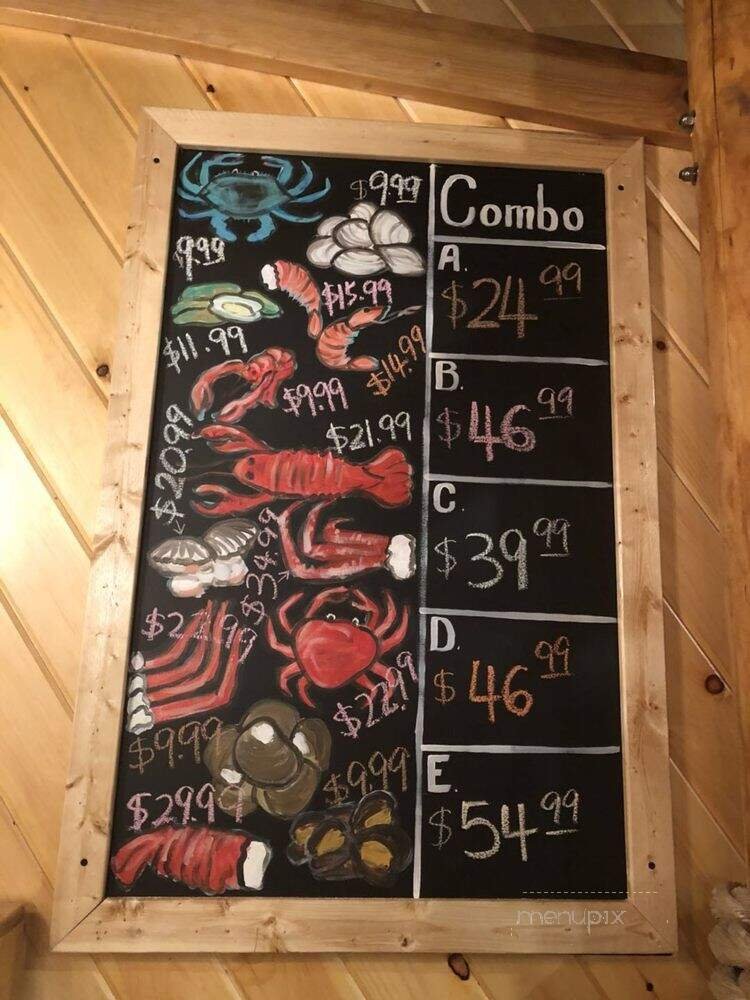 $9.99
$9.99
$15.99
$11.99
$14.99
$9.99
$21.99
$20.99
$34.99
$22.99
$9.99
$9.99
$29.99
Combo
A.
$24 99
B.
$46 99
C.
$39 99
D.
$46 99
E.
$54 99
menupix